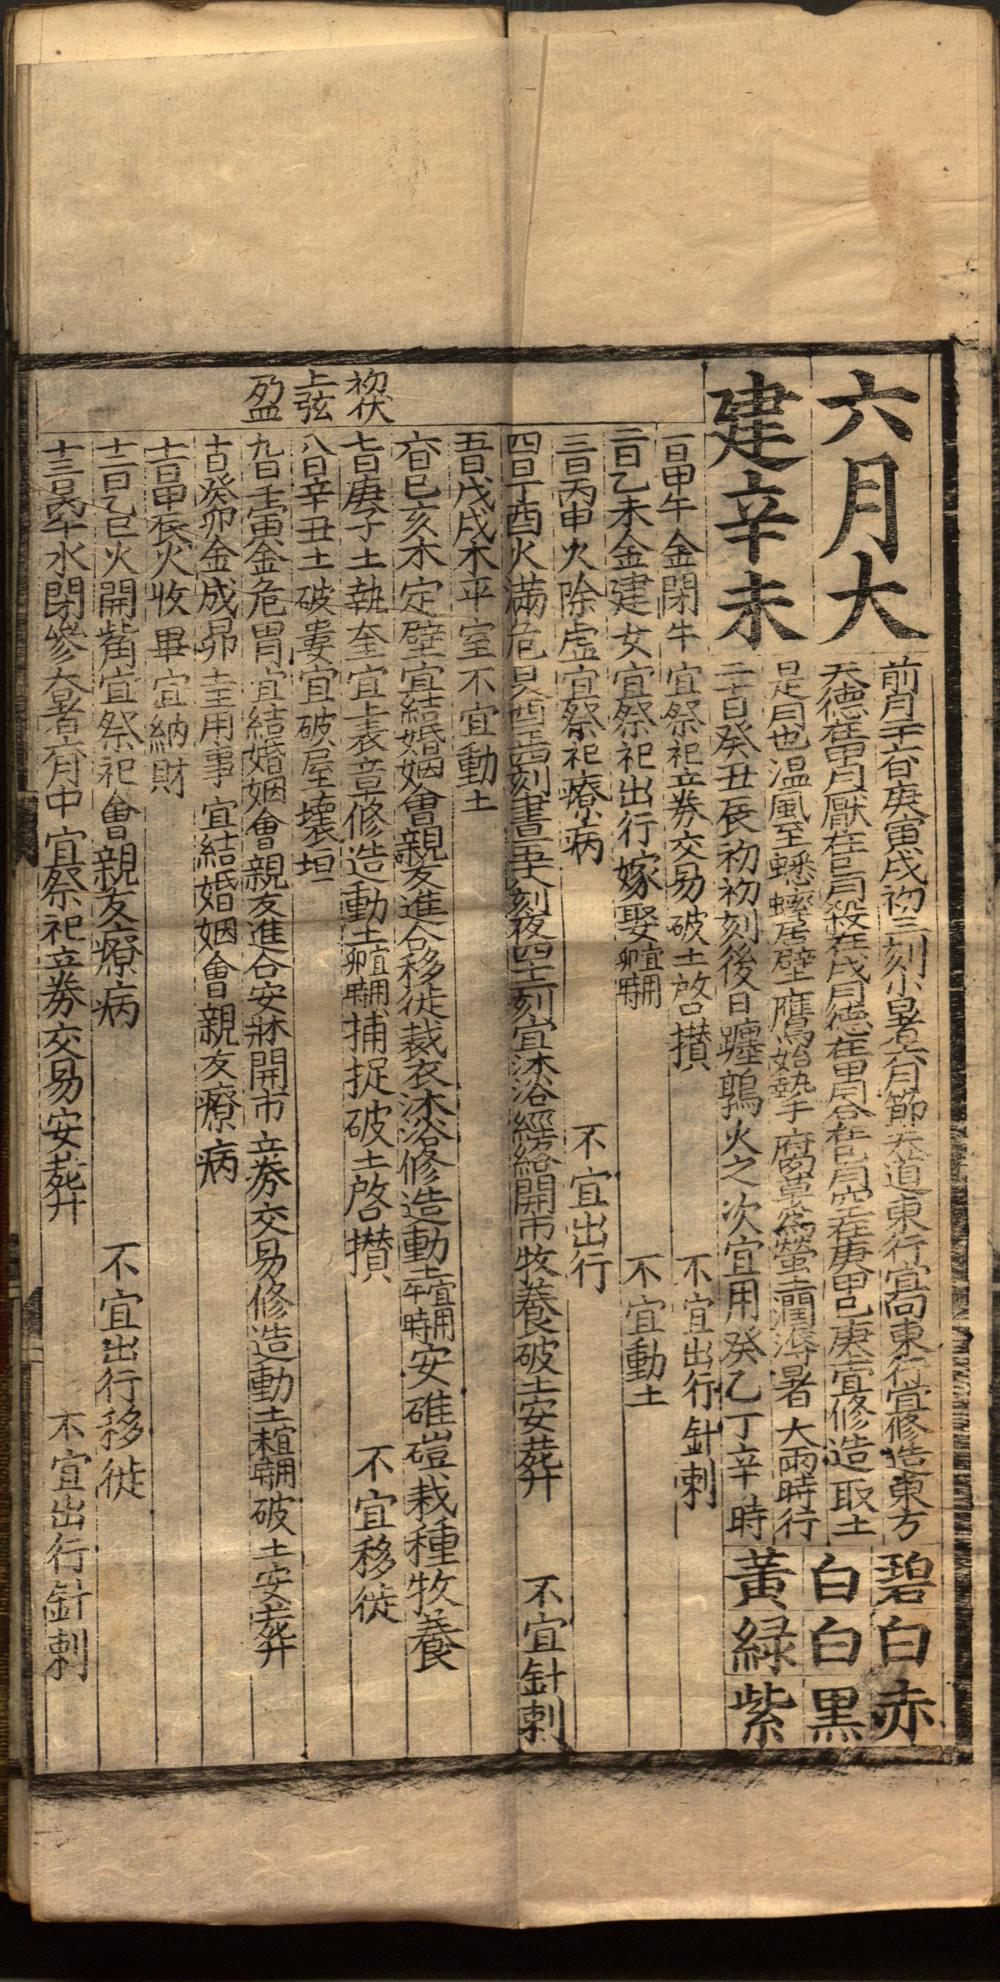 六月大
建辛未
前月二十六日庚寅戌初三刻小暑六月節天道東行宜向東行宜修造東方
天德在甲月厭在巳月殺在戌月德在甲月合在己月空在庚甲己庚宜修造取土
是月也溫風至蟋蟀居壁鷹始摯腐草為螢土潤溽暑大雨時行
二十日癸丑辰初初刻後日躔鶉火之次宜用癸乙丁辛時
碧白赤
白白黑
黃綠紫
一日甲午金閉牛宜祭祀立券交易破土啓攢 不宜出行針刺
二日乙未金建女宜祭祀出行嫁娶宜用卯時 不宜動土
三日丙申火除虛宜祭祀療病 不宜出行
四日丁酉火滿危 晝五十八刻夜四十二刻宜沐浴經絡開市牧養破土安葬 不宜針刺
五日戊戌木平室不宜動土
六日己亥木定壁宜結婚姻會親友進合移徙裁衣沐浴修造動土宜用午時安碓磑栽種牧養
初伏 七日庚子土執奎宜上表章修造動土宜用卯時捕捉破土啓攢 不宜移徙
上弦 八日辛丑土破婁宜破屋壞垣
盈 九日壬寅金危胃宜結婚姻會親友進合安牀開市立券交易修造動土宜用未時破土安葬
十日癸卯金成昴土王用事宜結婚姻會親友療病
十一日甲辰火收畢宜納財
十二日乙巳火開觜宜祭祀會親友療病 不宜出行移徙
十三日丙午水閉參大暑六月中宜祭祀立券交易安葬 不宜出行針刺